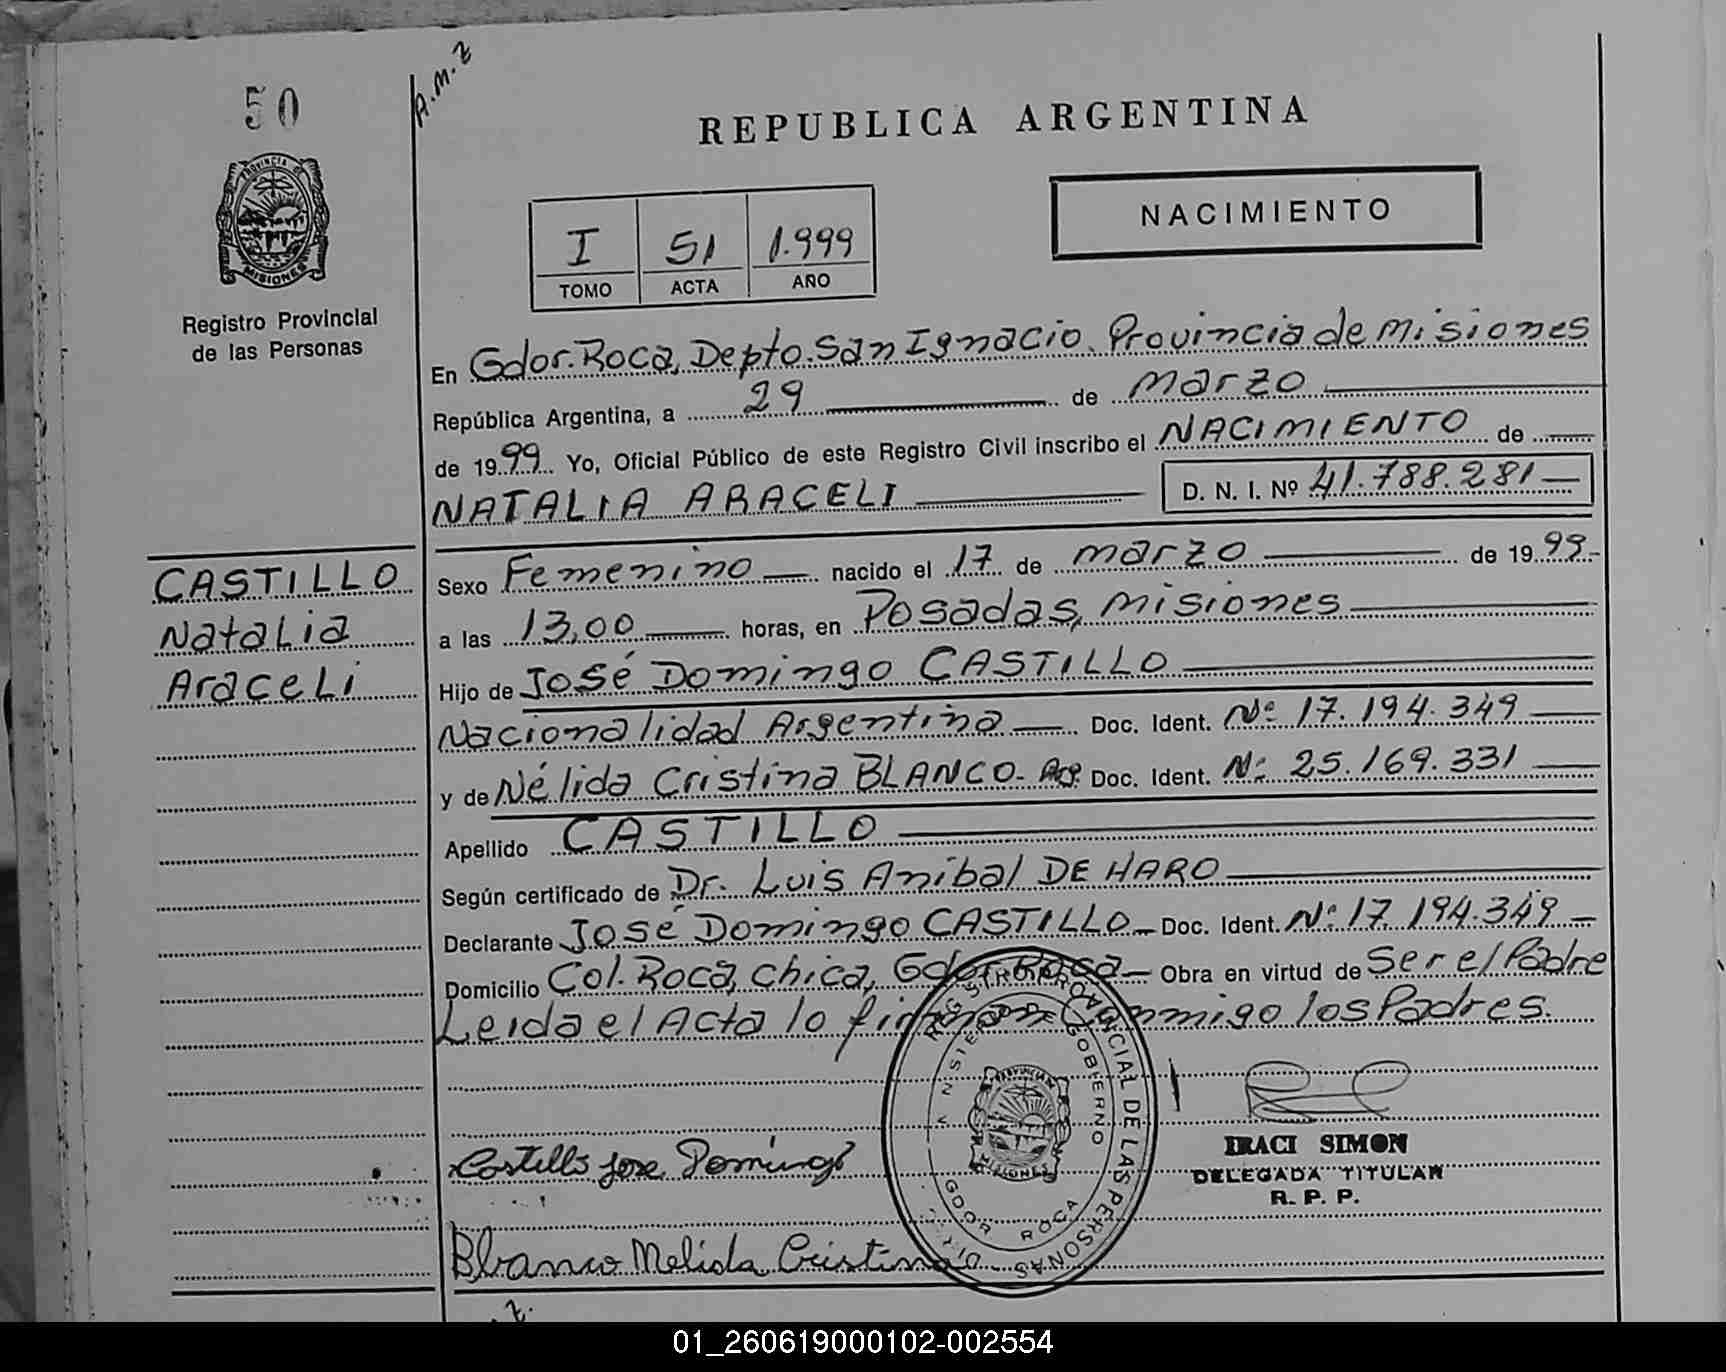 50
A.M.Z
REPUBLICA ARGENTINA
NACIMIENTO
I 51 1.999
TOMO ACTA AÑO
PROVINCIA DE
MISIONES
Registro Provincial
de las Personas
En Gdor. Roca, Depto. San Ignacio. Provincia de Misiones
República Argentina, a 29 de marzo
de 1999 Yo, Oficial Público de este Registro Civil inscribo el NACIMIENTO de
NATALIA ARACELI D. N. I. Nº 41.788.281
CASTILLO
Natalia
Araceli
Sexo Femenino nacido el 17 de marzo de 1999
a las 13,00 horas, en Posadas, Misiones
Hijo de José Domingo CASTILLO
Nacionalidad Argentina Doc. Ident. Nº 17.194.349
y de Nélida Cristina BLANCO- Arg. Doc. Ident. Nº 25.169.331
Apellido CASTILLO
Según certificado de Dr. Luis Anibal DE HARO
Declarante José Domingo CASTILLO Doc. Ident. Nº 17.194.349
Domicilio Col. Roca, Chica, Gdor. Roca Obra en virtud de Ser el Padre
Leida el Acta lo firman Conmigo los Padres.
REGISTRO PROVINCIAL DE LAS PERSONAS
GOBIERNO
GDOR ROCA
PROVINCIA DE
MISIONES
IRACI SIMON
DELEGADA TITULAR
R. P. P.
Castillo Jose Domingo
Blanco Nelida Cristina
01_260619000102-002554